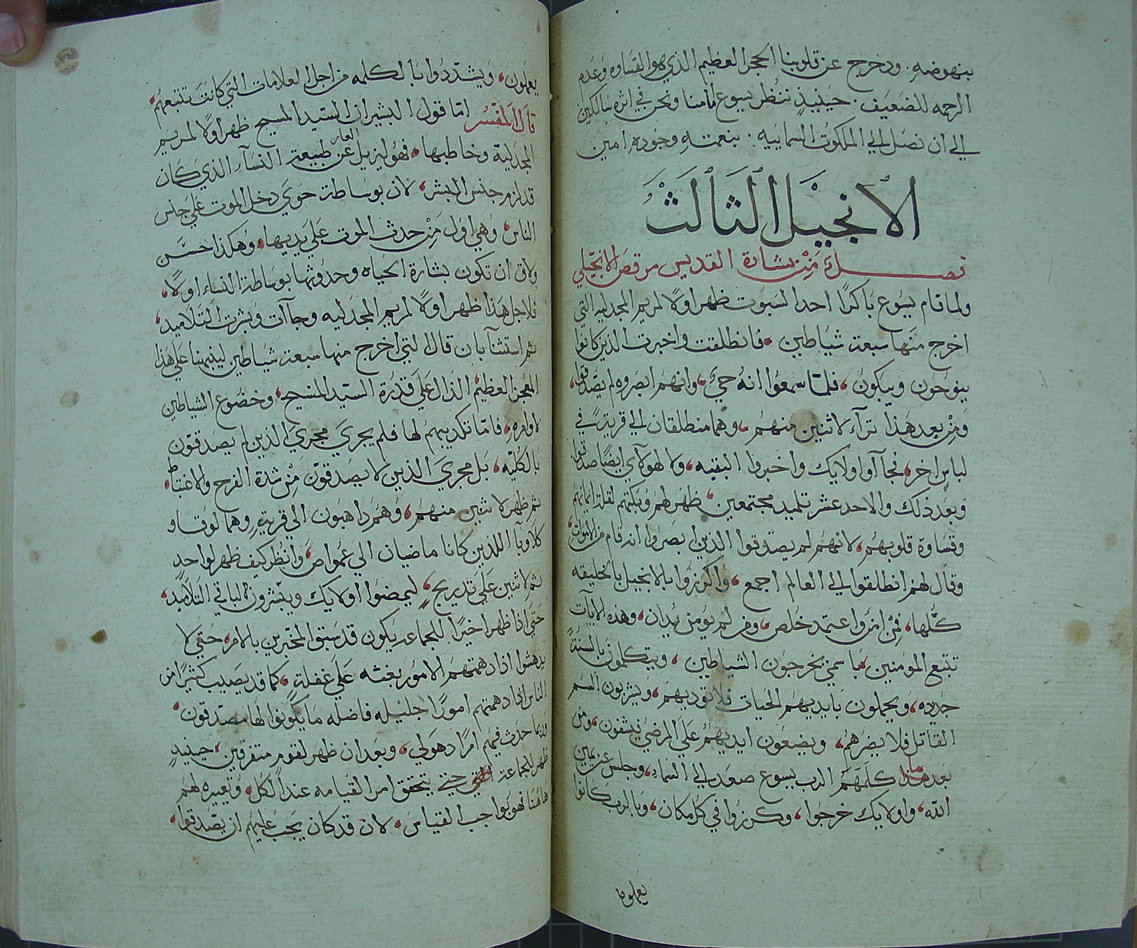 بنهوضه. ودحرج عن قلوبنا الحجر العظيم الذي هو القساوه وعدم
الرحمه للضعيف. حينيذٍ ننظر يسوع مامنا ونحن في اثره سالكين
الي ان نصل الي الملكوت السماييه: بنعمته وجوده امين
الانجيل الثالث
فصل من بشارة القديس مرقص الانجيلي
ولما قام يسوع باكرًا احد السبوت ظهر اولًا لمريم المجدليه التي
اخرج منها سبعة شياطين. فانطلقت واخبرت الذين كانوا
ينوحون ويبكون، فلما سمعوا انه حيٌ، وانهم ابصروه لم يصدقوا،
ومن بعد هذا ترآء لاثنين منهم، وهما منطلقان الي قريةٍ في
لباس اخر، فجآوا اولايك واخبروا البقيه، ولا لهولآي ايضًا صدقوا
وبعد ذلك والاحد عشر تلميد مجتمعين، ظهر لهم وبكتهم لقلة ايمانهم
وقساوة قلوبهم، لانهم لم يصدقوا الذين ابصروا انه قام من الاموات،
وقال لهم انطلقوا الي العالم اجمع، واكرزوا بالانجيل بالخليقه
كلها، فمن امن واعتمد خلص، ومن لم يومن يدان، وهذه الايات
تتبع المومنين، باسمي يخرجون الشياطين، ويتكلمون بالسنةً
جدده، ويحملون بايديهم الحيات فلا توديهم، ويشربون السم
القاتل فلا يضرهم، ويضعون ايديهم علي المرضي فيشفون، ومن
بعد ما كلمهم الرب يسوع صعد الي السماء، وجلس عن يمين
الله، واولايك خرجوا، وكرزوا في كل مكان، وبالرب كانوا
يعملون
يعملون، ويشددوا بالكلمه من اجل العلامات التي كانت تتبعهم،
قال المفسر اما قول البشير ان السيد المسيح ظهر اولًا لمريم
المجدلية وخاطبها، فهو ليزيل العار عن طبيعة النسآ الذي كان
قد لزم جنس البشر، لان بوساطة حوي دخل الموت علي جنس
الناس، وهي اول من حدث الموت علي يديها، وهكذا حسن
ولاق ان تكون بشارة الحياه وحدوثها بوساطة النساء اولًا،
فلاجل هذا ظهر اولًا لمريم المجدليه وجآت وبشرت التلاميد،
ثم استثنا بان قال التي اخرج منها سبعة شياطين لينبهنا علي هذا
المعجز العظيم الدال علي قدرة السيد المسيح، وخضوع الشياطين
لاوامره، فاما تكديبهم لها فلم يجري مجري الذين لم يصدقون
بالكليه، بل مجري الذين لا يصدقون من شدة الفرح والاغتباط،
ثم ظهر لاثنين منهم، وهم داهبون الي قريةٍ، وهما لوقا و
كلاوبا اللذين كانا ماضيان الي عمواص، وانظر كيف ظهر لواحد
ثم لاثنين علي تدريجٍ، ليمضوا اولايك ويبشرون لباقي التلاميد،
حتي اذا ظهر اخيرًا للجماعه يكون قد سبق المخبرين بالامر، حتي لا
يدهشوا اذا دهمتهم الامور بغتةً علي غفلةٍ، كما قد يصيب كثيرًا من
الناس اذا دهمتهم امورًا جليله فاضله ما يكونوا لها مصدقون،
وربما حدث فيهم امرًا دهولي، وبعد ان ظهر لقوم متفرقين، حينيدٍ
ظهر للجماعة حتي يتحقق امر القيامه عند الكل، وتعييره لهم
هاهنا فهو بواجب القياس، لان قد كان يجب عليهم ان يصدقوا،